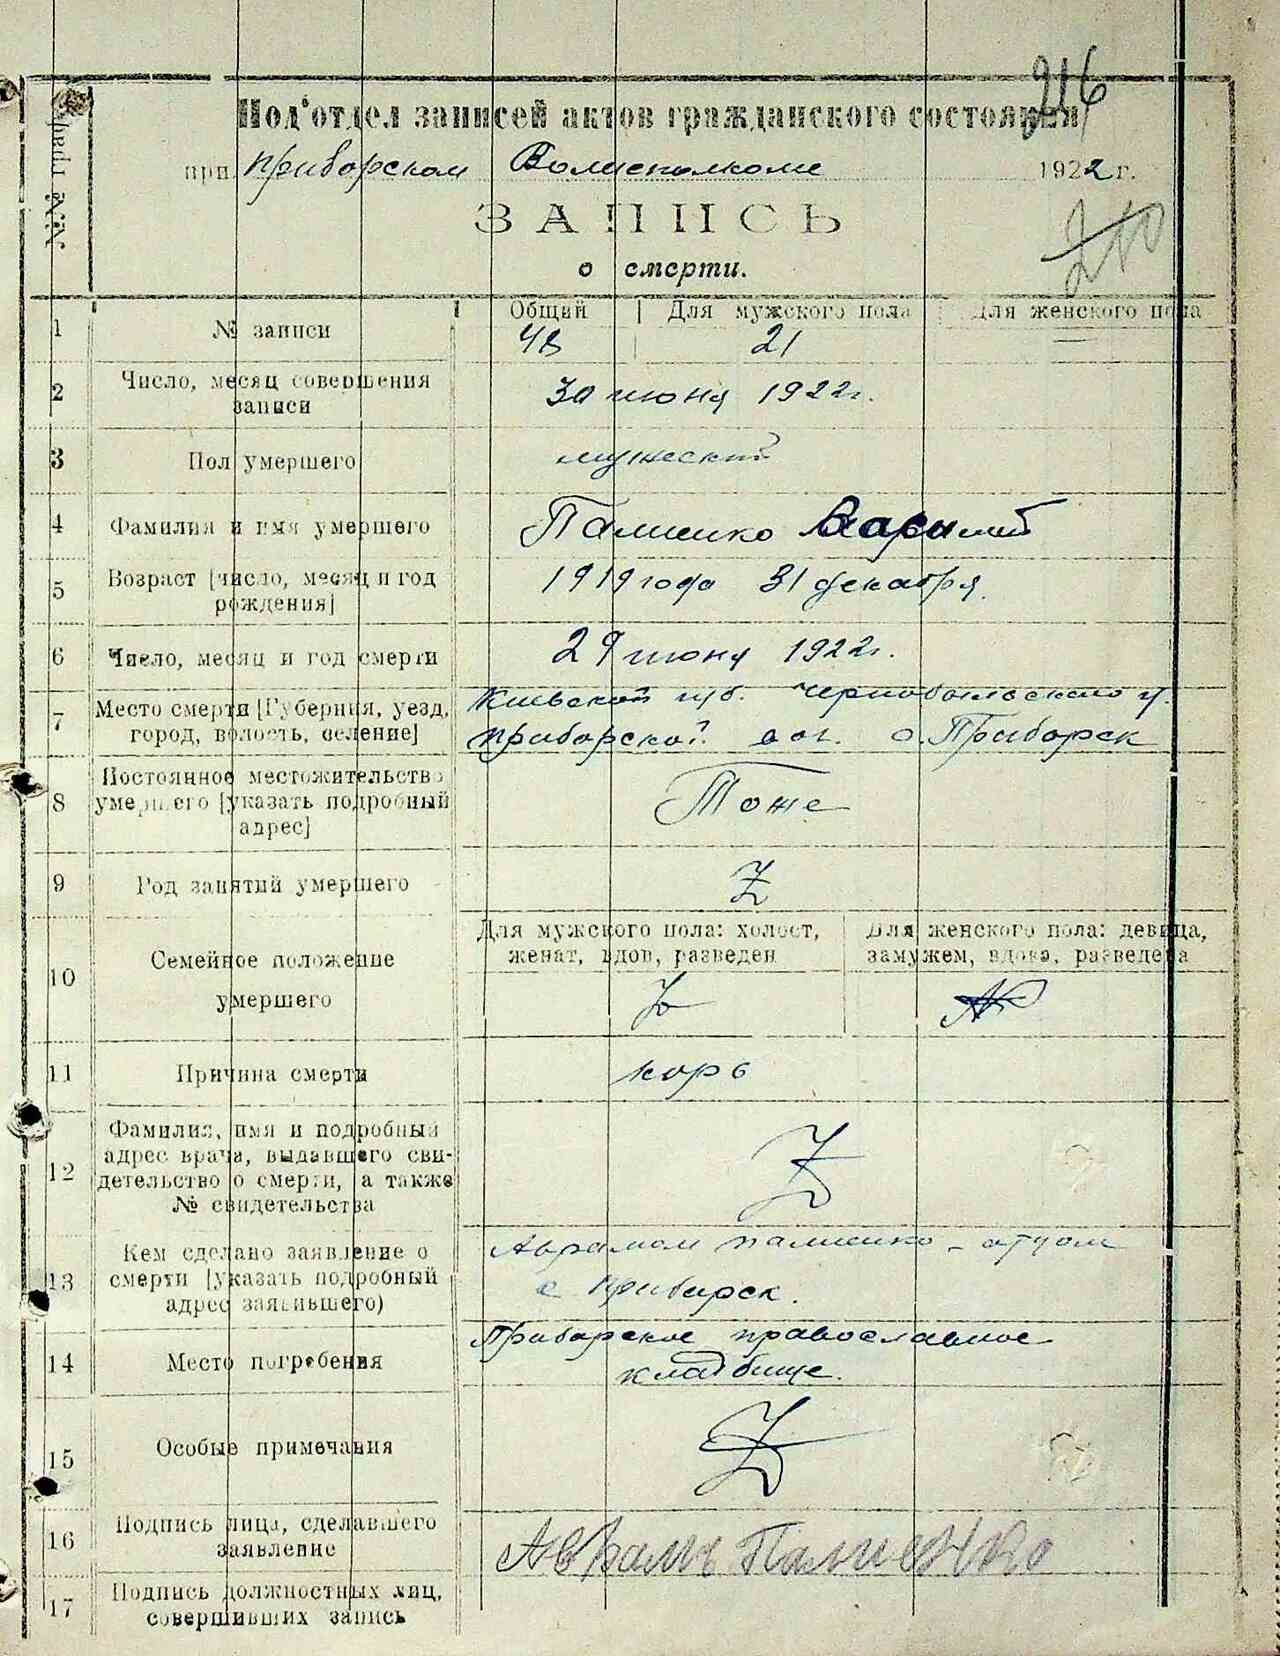 216
Под'отдел записей актов гражданского состояния
при Приборском Волисполкоме 1922 г.
№№ граф
ЗАПИСЬ
о смерти.
Общий Для мужского пола Для женского пола
1 № записи 48 21 =
2 Число, месяц совершения
записи
30 июня 1922 г.
3 Пол умершего мужеский
4 Фамилия и имя умершего Палиенко
5 Возраст [число, месяц и год
рождения]
1919 года 31 декабря.
6 Число, месяц и год смерти 29 июня 1922 г.
7 Место смерти [Губерния, уезд,
город, волость, селение]
Киевской губ. Чернобыльского у.
Приборской вол. с. Приборск
8 Постоянное местожительство
умершего [указать подробный
адрес]
Тоже
9 Род занятий умершего Z
10 Семейное положение
умершего
Для мужского пола: холост,
женат, вдов, разведен
Для женского пола: девица,
замужем, вдова, разведена
Z
11 Причина смерти корь
12 Фамилия, имя и подробный
адрес врача, выдавшего сви-
детельство о смерти, а также
№ свидетельства
Z
13 Кем сделано заявление о
смерти [указать подробный
адрес заявившего)
Аврамом Палиенко - отцом
с Приборск.
14 Место погребения
Приборское православное
кладбище.
15 Особые примечания Z
16 Подпись лица, сделавшего
заявление
Аврамъ Палиенко
17 Подпись должностных лиц,
совершивших запись